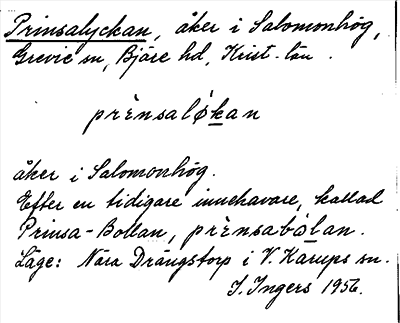 Prinsalyckan, åker i Salomonhög,
Grevie sn, Bjäre hd, Krist. län.
prìnsalø̀kan
åker i Salomonhög.
Efter en tidigare innehavare, kallad
Prinsa-Bollan, prìnsabòlan.
Läge: Nära Drängstorp i V. Karups sn.
I. Ingers 1956.